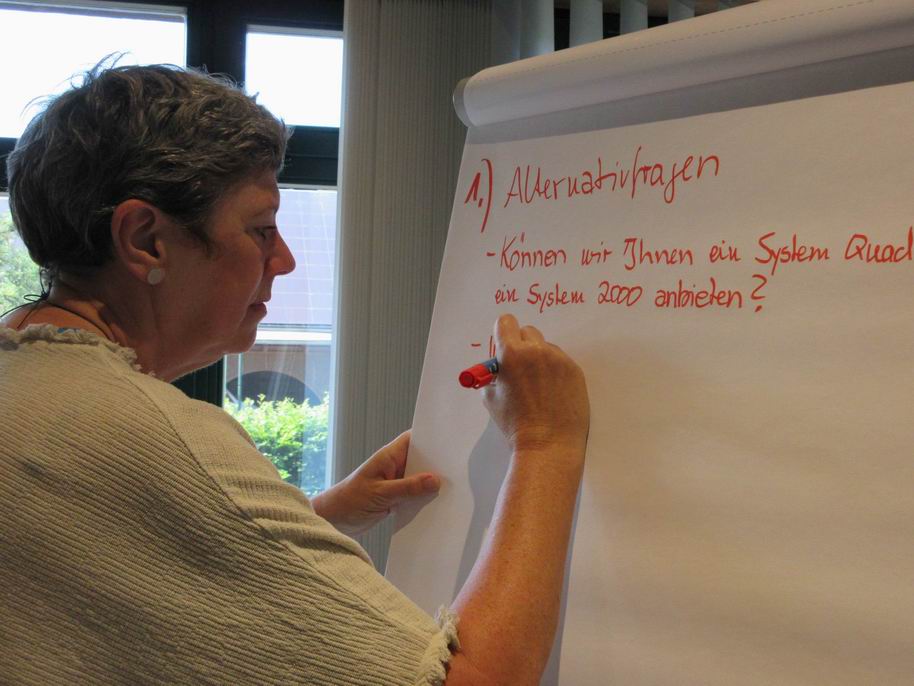 1.) Alternativfragen
- Können wir Ihnen ein System Quad
ein System 2000 anbieten?
-